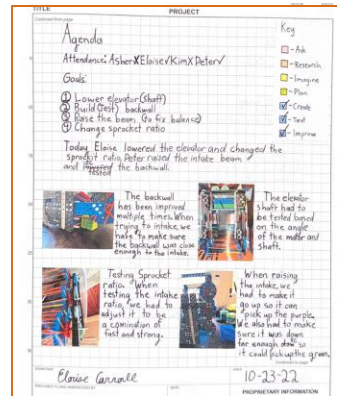 TITLE
PROJECT
Continued from page
Agenda
Attendance: Asher X Eloise ✓ Kim X Peter ✓
Goals:
① Lower elevator (shaft)
② Build (test) backwall
③ Raise the beam (to fix balance)
④ Change sprocket ratio
Today, Eloise lowered the elevator and changed the
sprocket ratio, Peter raised the intake beam
and tested the backwall.
Key
- Ask
- Research
- Imagine
- Plan
- Create
- Test
- Improve
The backwall
has been improved
multiple times. When
trying to intake, we
have to make sure
the backwall was close
enough to the intake.
The elevator
shaft had to
be tested based
on the angle
of the motor and
shaft.
Testing Sprocket
ratio. When
testing the intake
ratio, we had to
adjust it to be
a comination of
fast and strong.
When raising
the intake, we
had to make it
go up so it can
pick up the purple.
We also had to make
sure it was down
far enough so
it could pick up the green.
Continued to page
SIGNATURE
Eloise Carroll
DATE
10-23-22
DATE
PROPRIETARY INFORMATION